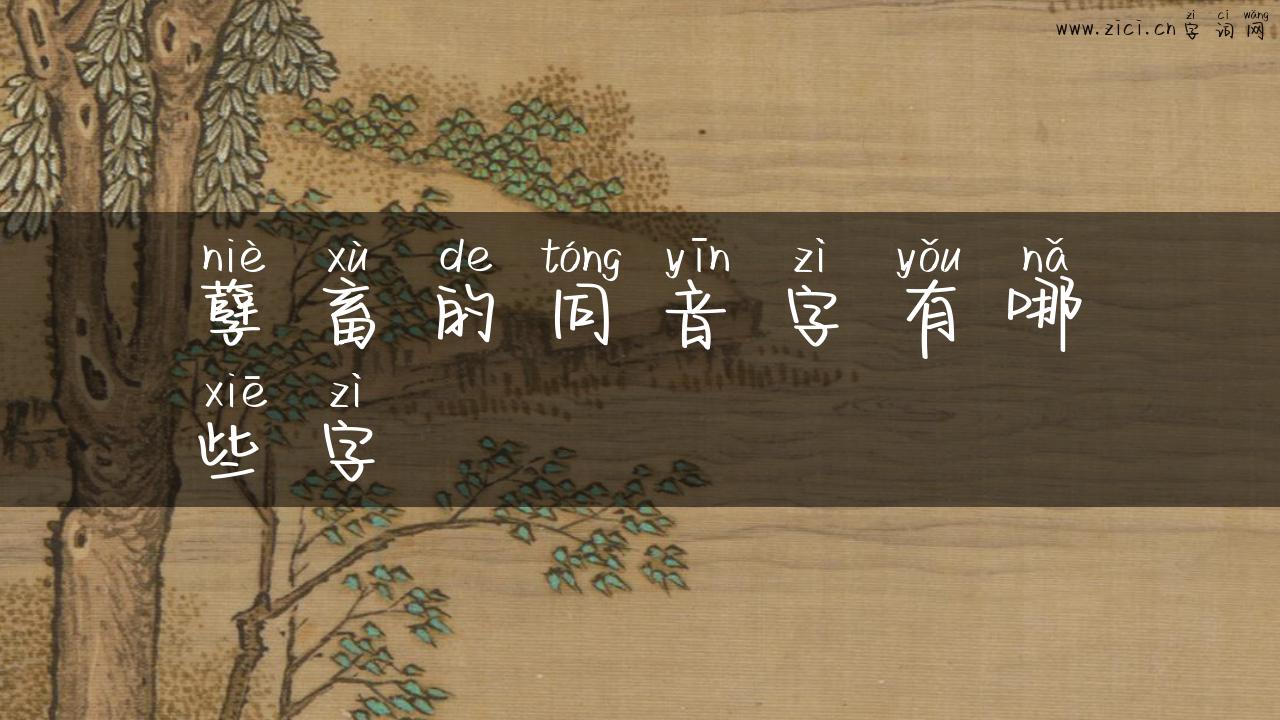 zì cí wǎng
www.zici.cn 字词网
niè xù de tóng yīn zì yǒu nǎ
孽畜的同音字有哪
xiē zì
些字